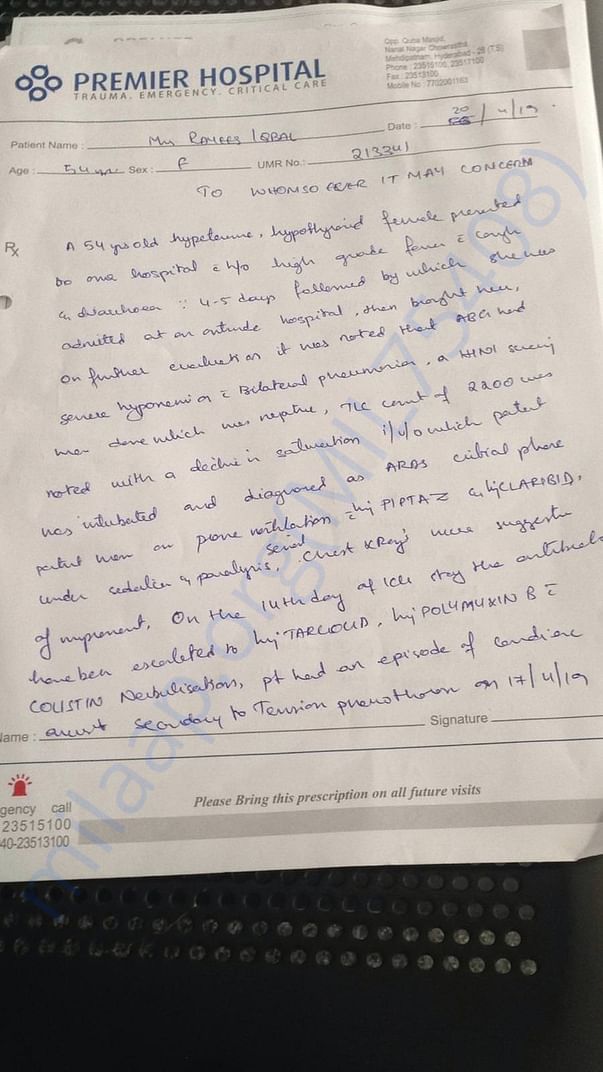 PREMIER HOSPITAL
TRAUMA. EMERGENCY. CRITICAL CARE
Opp. Quba Masjid,
Nanal Nagar Chowrastha,
Mehdipatnam, Hyderabad - 28 (T.S)
Phone : 23515100, 23517100
Fax : 23513100
Mobile No : 7702001163
Patient Name : Mrs RAMEES IQBAL Date : 20/4/19
Age : 54 yrs Sex : F UMR No.: 213341
TO WHOMSOEVER IT MAY CONCERN
Rx
A 54 yrs old hypotensive, hypothyroid female presented
to our hospital c h/o high grade fever c cough
& diarrhoea :: 4-5 days followed by which she was
admitted at an outside hospital, then brought here,
On further evaluation it was noted that ABG had
severe hypoxemia c Bilateral pneumonia, a H1N1 screening
was done which was negative, TLC count of 2200 was
noted with a decline in saturation i/v/o which patient
was intubated and diagnosed as ARDS initial phase
patient was on prone ventilation c inj PIPTAZ & inj CLARIBID,
under sedation & paralysis, serial chest XRays were suggestive
of improvement, On the 14th day of ICU stay the antibiotics
have been escalated to inj TARGOCID, inj POLYMYXIN B c
COLISTIN Nebulisation, pt had an episode of cardiac
arrest secondary to Tension pneumothorax on 17/4/19
Name : Signature
gency call
23515100
40-23513100
Please Bring this prescription on all future visits
milaap.org(MIL75408)